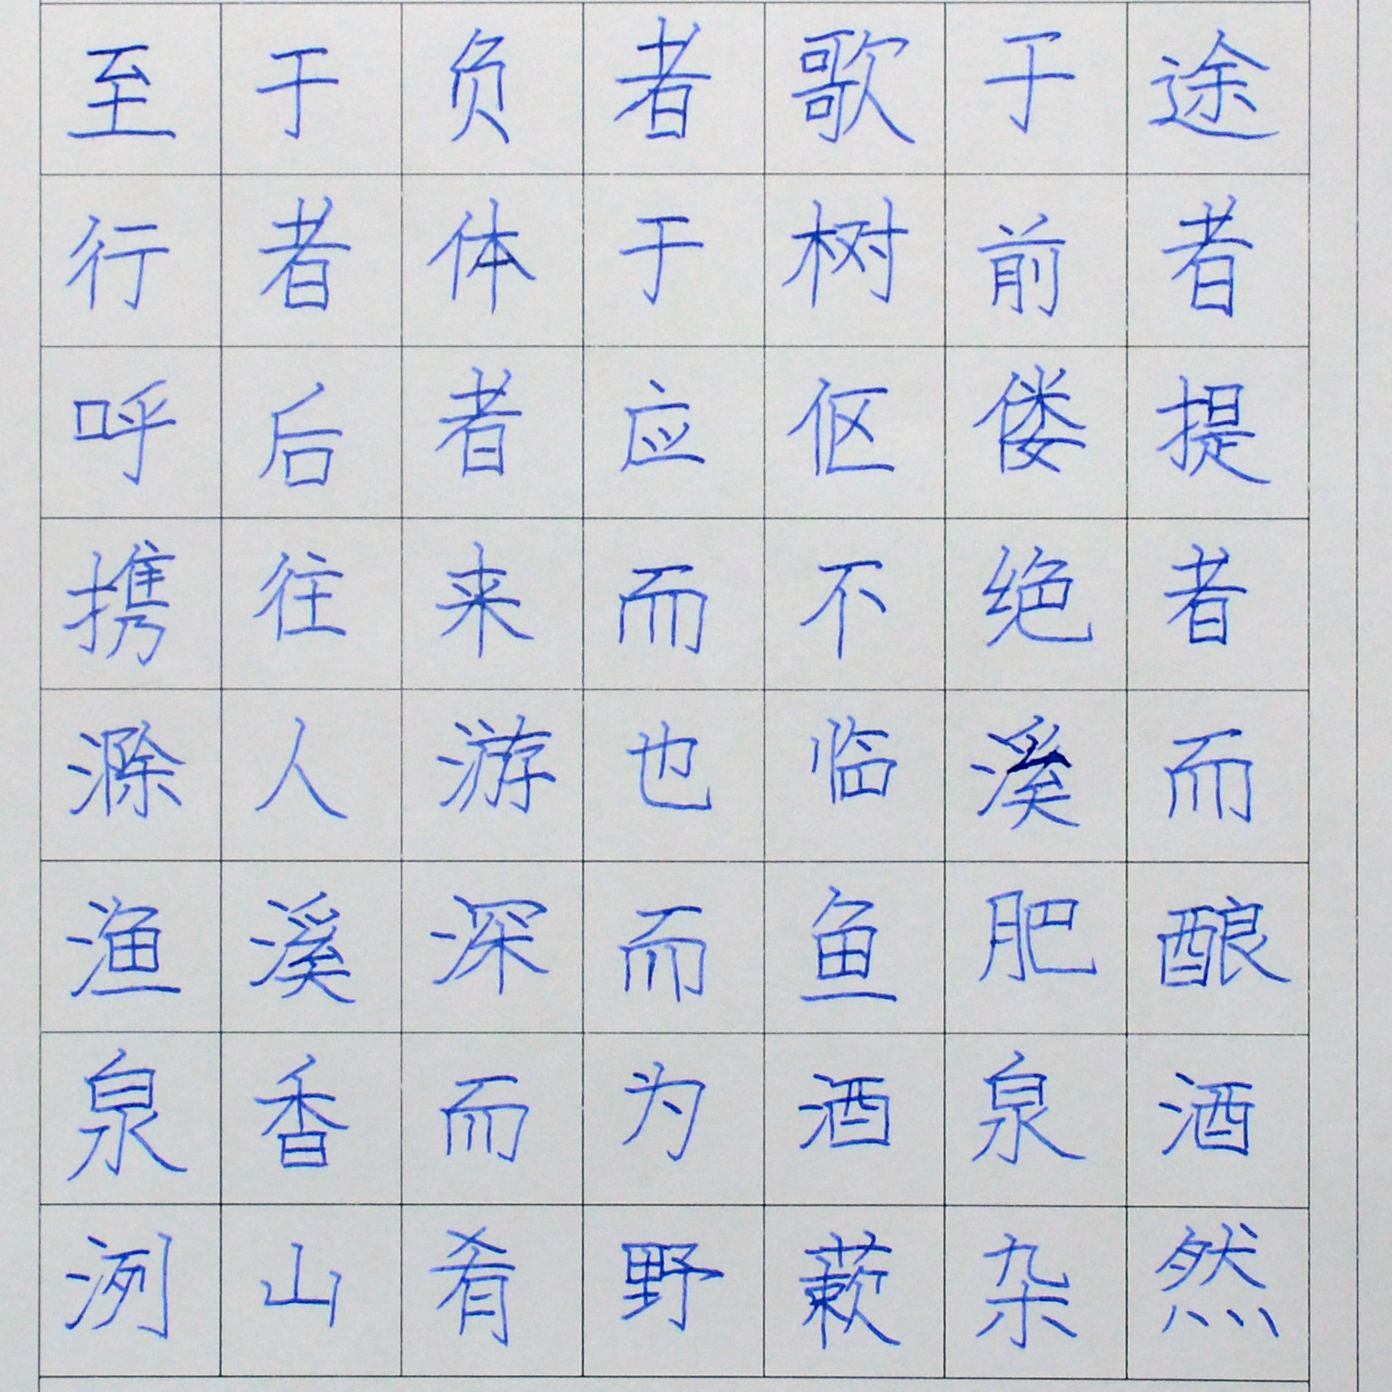 至于负者歌于途
行者体于树前者
呼后者应伛偻提
携往来而不绝者
滁人游也临溪而
渔溪深而鱼肥酿
泉香而为酒泉酒
洌山肴野蔌杂然